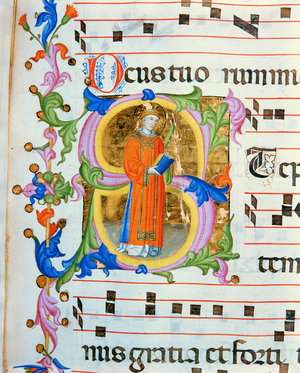 Deus tuo rum mi
S
Te p
tem
nus gratia et forti